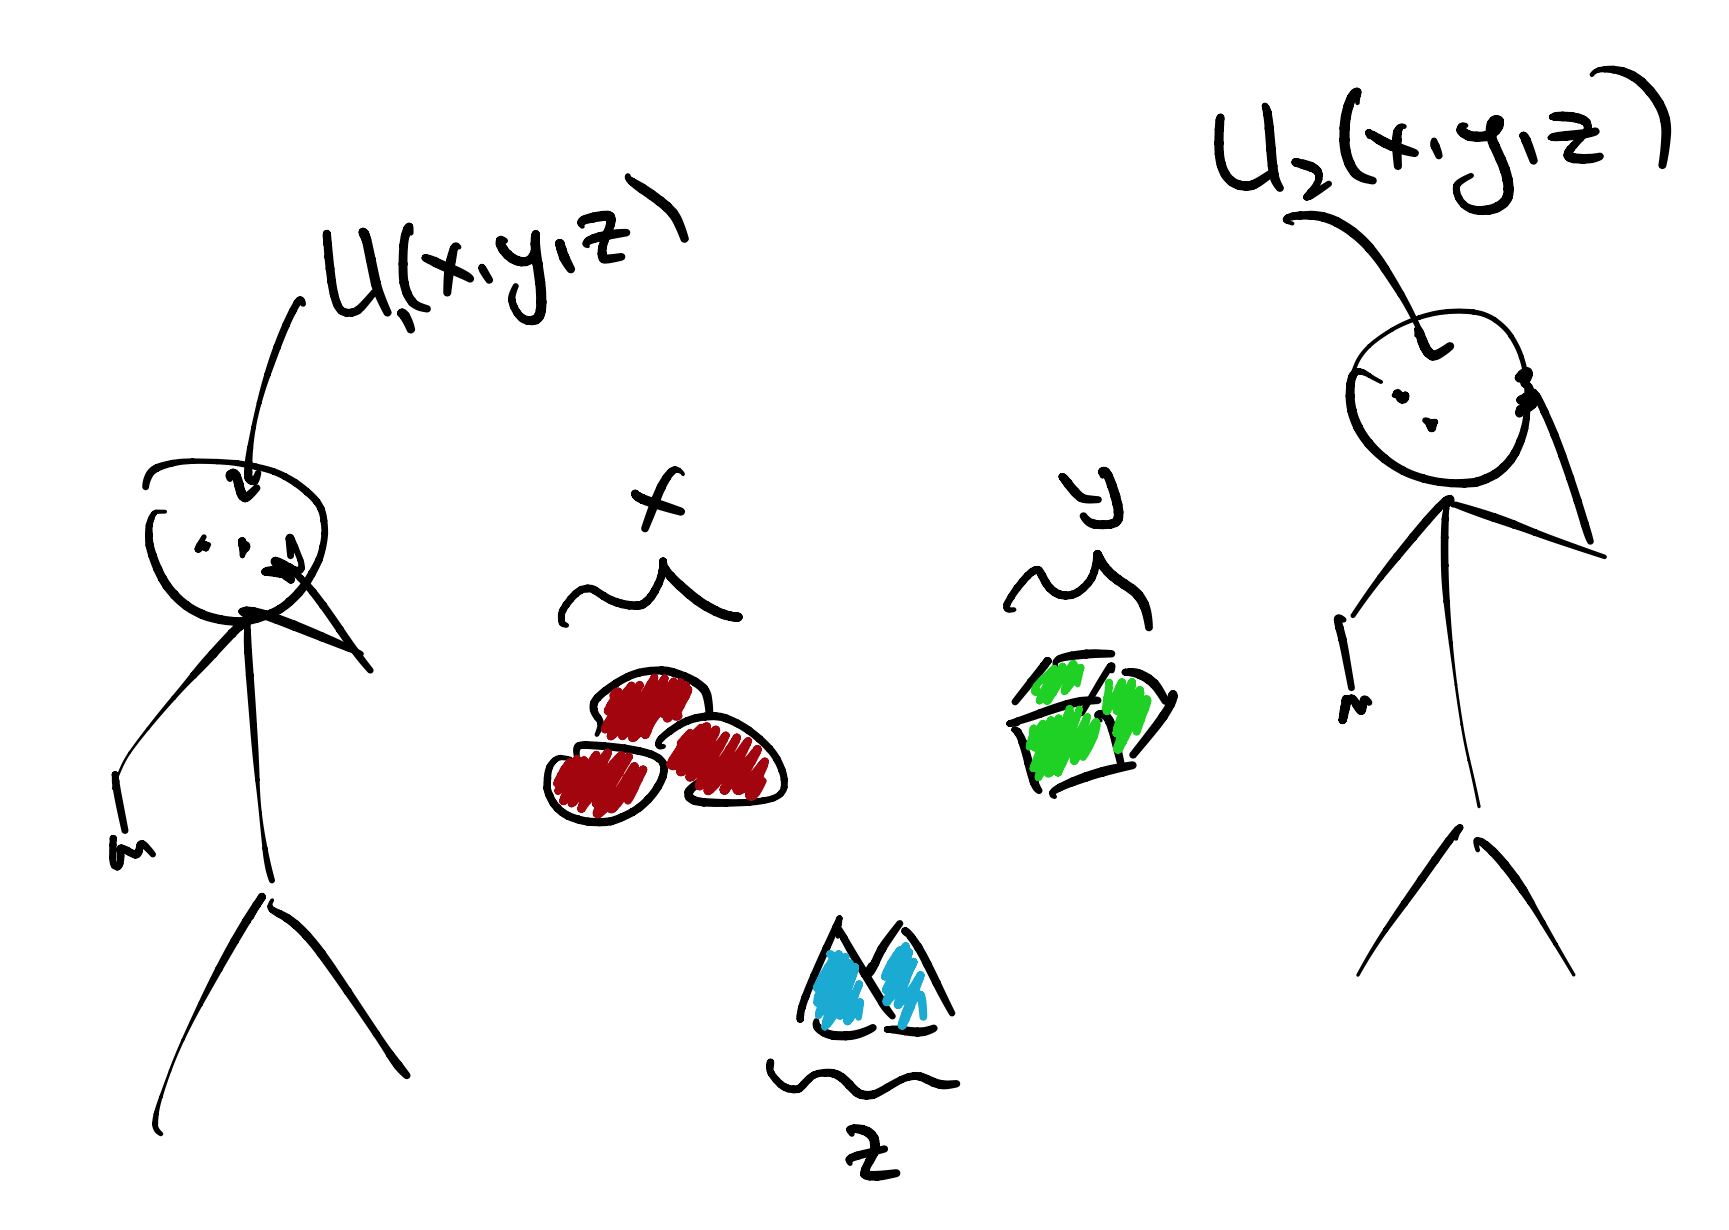 U₁(x,y,z)
U₂(x,y,z)
x
y
z